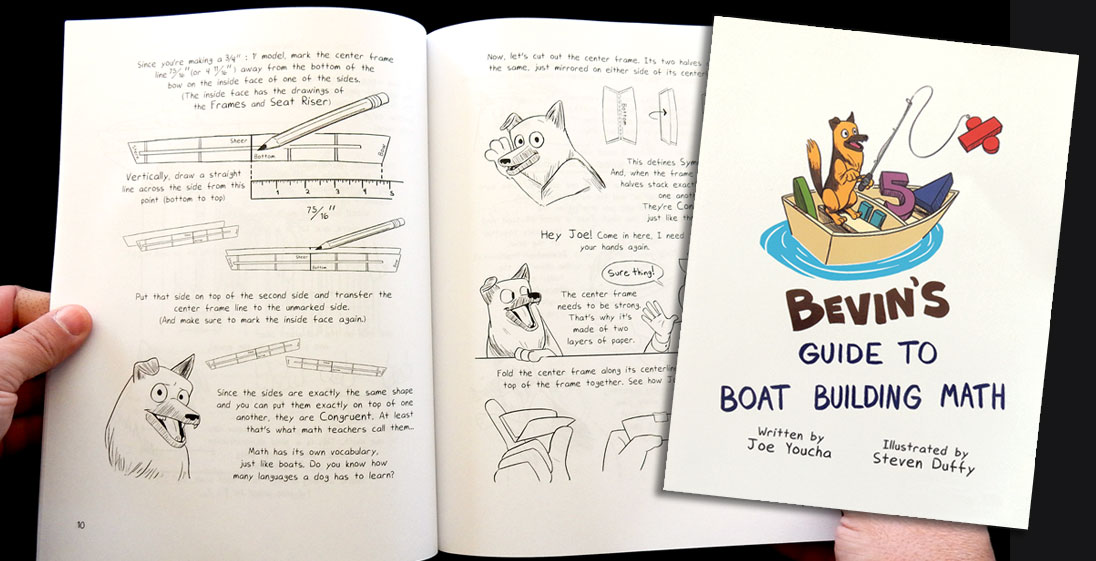 Since you're making a 3/4" : 1' model, mark the center frame
line 75/16" (or 4 11/16") away from the bottom of the
bow on the inside face of one of the sides.
(The inside face has the drawings of
the Frames and Seat Riser)
Sheer
Bottom
Bow
Vertically, draw a straight
line across the side from this
point (bottom to top)
1 2 3 4 5
75/16"
Sheer
Bottom
Put that side on top of the second side and transfer the
center frame line to the unmarked side.
(And make sure to mark the inside face again.)
Since the sides are exactly the same shape
and you can put them exactly on top of one
another, they are Congruent. At least
that's what math teachers call them...
Math has its own vocabulary,
just like boats. Do you know how
many languages a dog has to learn?
10
Now, let's cut out the center frame. Its two halves
the same, just mirrored on either side of its center
Bottom
This defines Sym
And, when the frame
halves stack exact
one anot
They're Con
just like th
Hey Joe! Come in here, I need
your hands again.
Sure thing!
The center frame
needs to be strong.
That's why it's
made of two
layers of paper.
Fold the center frame along its centerlin
top of the frame together. See how
5
BEVIN'S
GUIDE TO
BOAT BUILDING MATH
Written by
Joe Youcha
Illustrated by
Steven Duffy